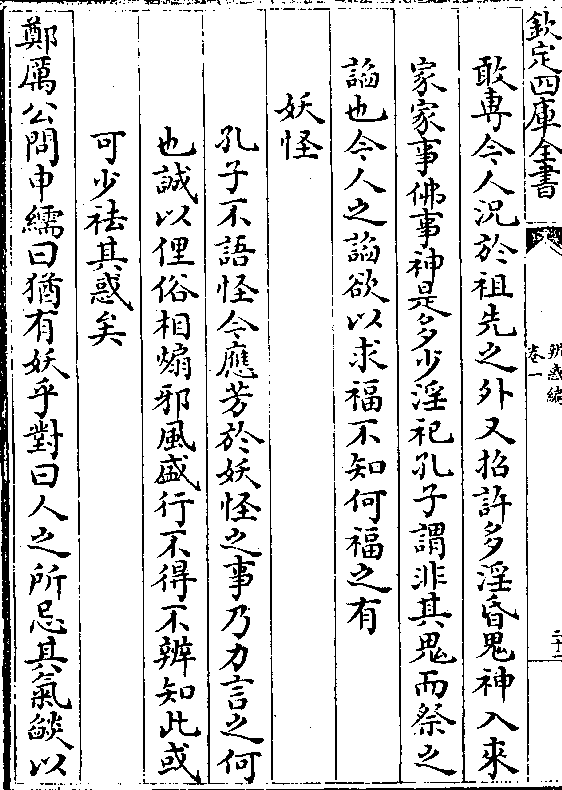 欽定四庫全書
辨惑編
卷一
二十二
敢專今人況於祖先之外又招許多淫昏鬼神入來
家家事佛事神是多少淫祀孔子謂非其鬼而祭之
諂也今人之諂欲以求福不知何福之有
妖怪
孔子不語怪今應芳於妖怪之事乃力言之何
也誠以俚俗相煽邪風盛行不得不辨知此或
可少祛其惑矣
鄭厲公問申繻曰猶有妖乎對曰人之所忌其氣燄以